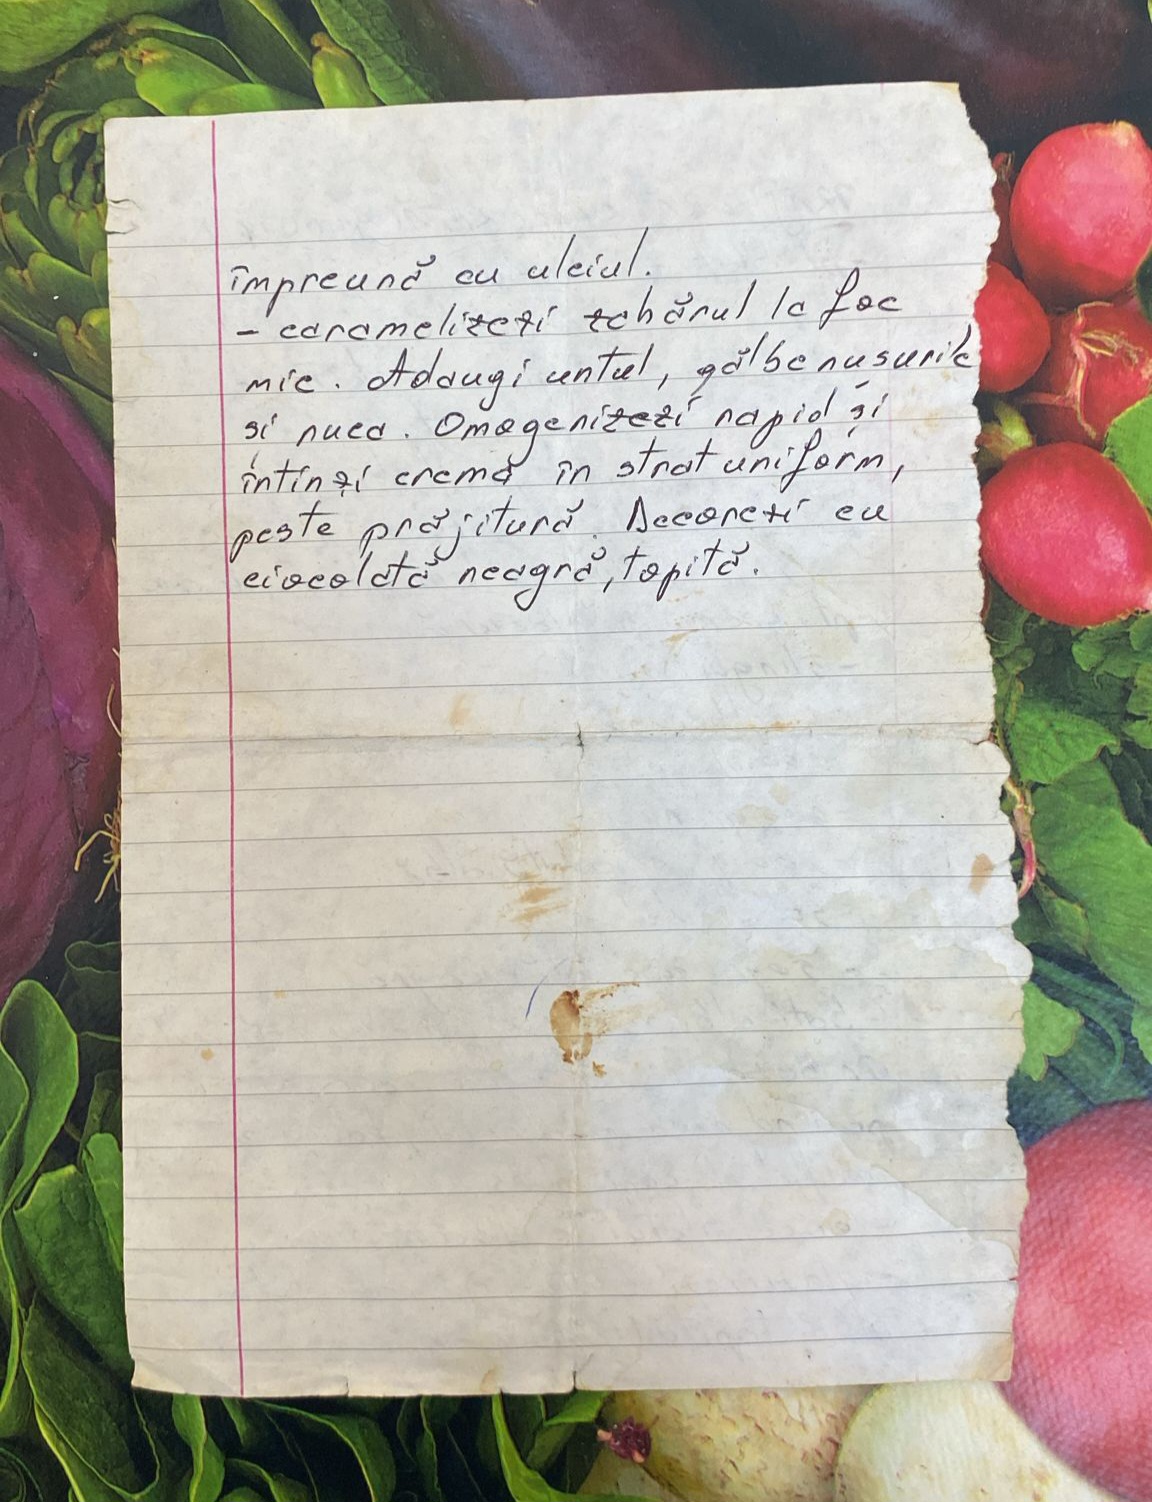 împreună cu uleiul.
- caramelizezi zahărul la foc
mic. Adaugi untul, gălbenușurile
și nuca. Omogenizezi rapid și
întinzi cremă în strat uniform,
peste prăjitură. Decorezi cu
ciocolată neagră, topită.